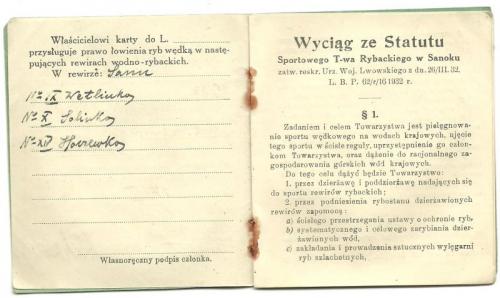 Właścicielowi karty do L.
przysługuje prawo łowienia ryb wędką w nastę-
pujących rewirach wodno-rybackich.
W rewirze: Sanu
No IX Wetlinka
No X Solinka
No XII
Własnoręczny podpis członka.
Wyciąg ze Statutu
Sportowego T-wa Rybackiego w Sanoku
zatw. reskr. Urz. Woj. Lwowskiego z dn. 26/III. 32.
L. B. P. 62/r/16 1932 r.
§ 1.
Zadaniem i celem Towarzystwa jest pielęgnowa-
nie sportu wędkowego na wodach krajowych, ujęcie
tego sportu w ścisłe reguły, uprzystępnienie go człon-
kom Towarzystwa, oraz dążenie do racjonalnego za-
gospodarowania górskich wód krajowych.
Do tego celu dążyć będzie Towarzystwo:
1. przez dzierżawę i poddzierżawę nadających się
do sportu rewirów rybackich;
2. przez podniesienia rybostanu dzierżawionych
rewirów zapomocą:
a) ścisłego przestrzegania ustawy o ochronie ryb,
b) systematycznego i celowego zarybiania dzier-
żawionych wód,
c) zakładania i prowadzenia sztucznych wylęgarni
ryb szlachetnych,